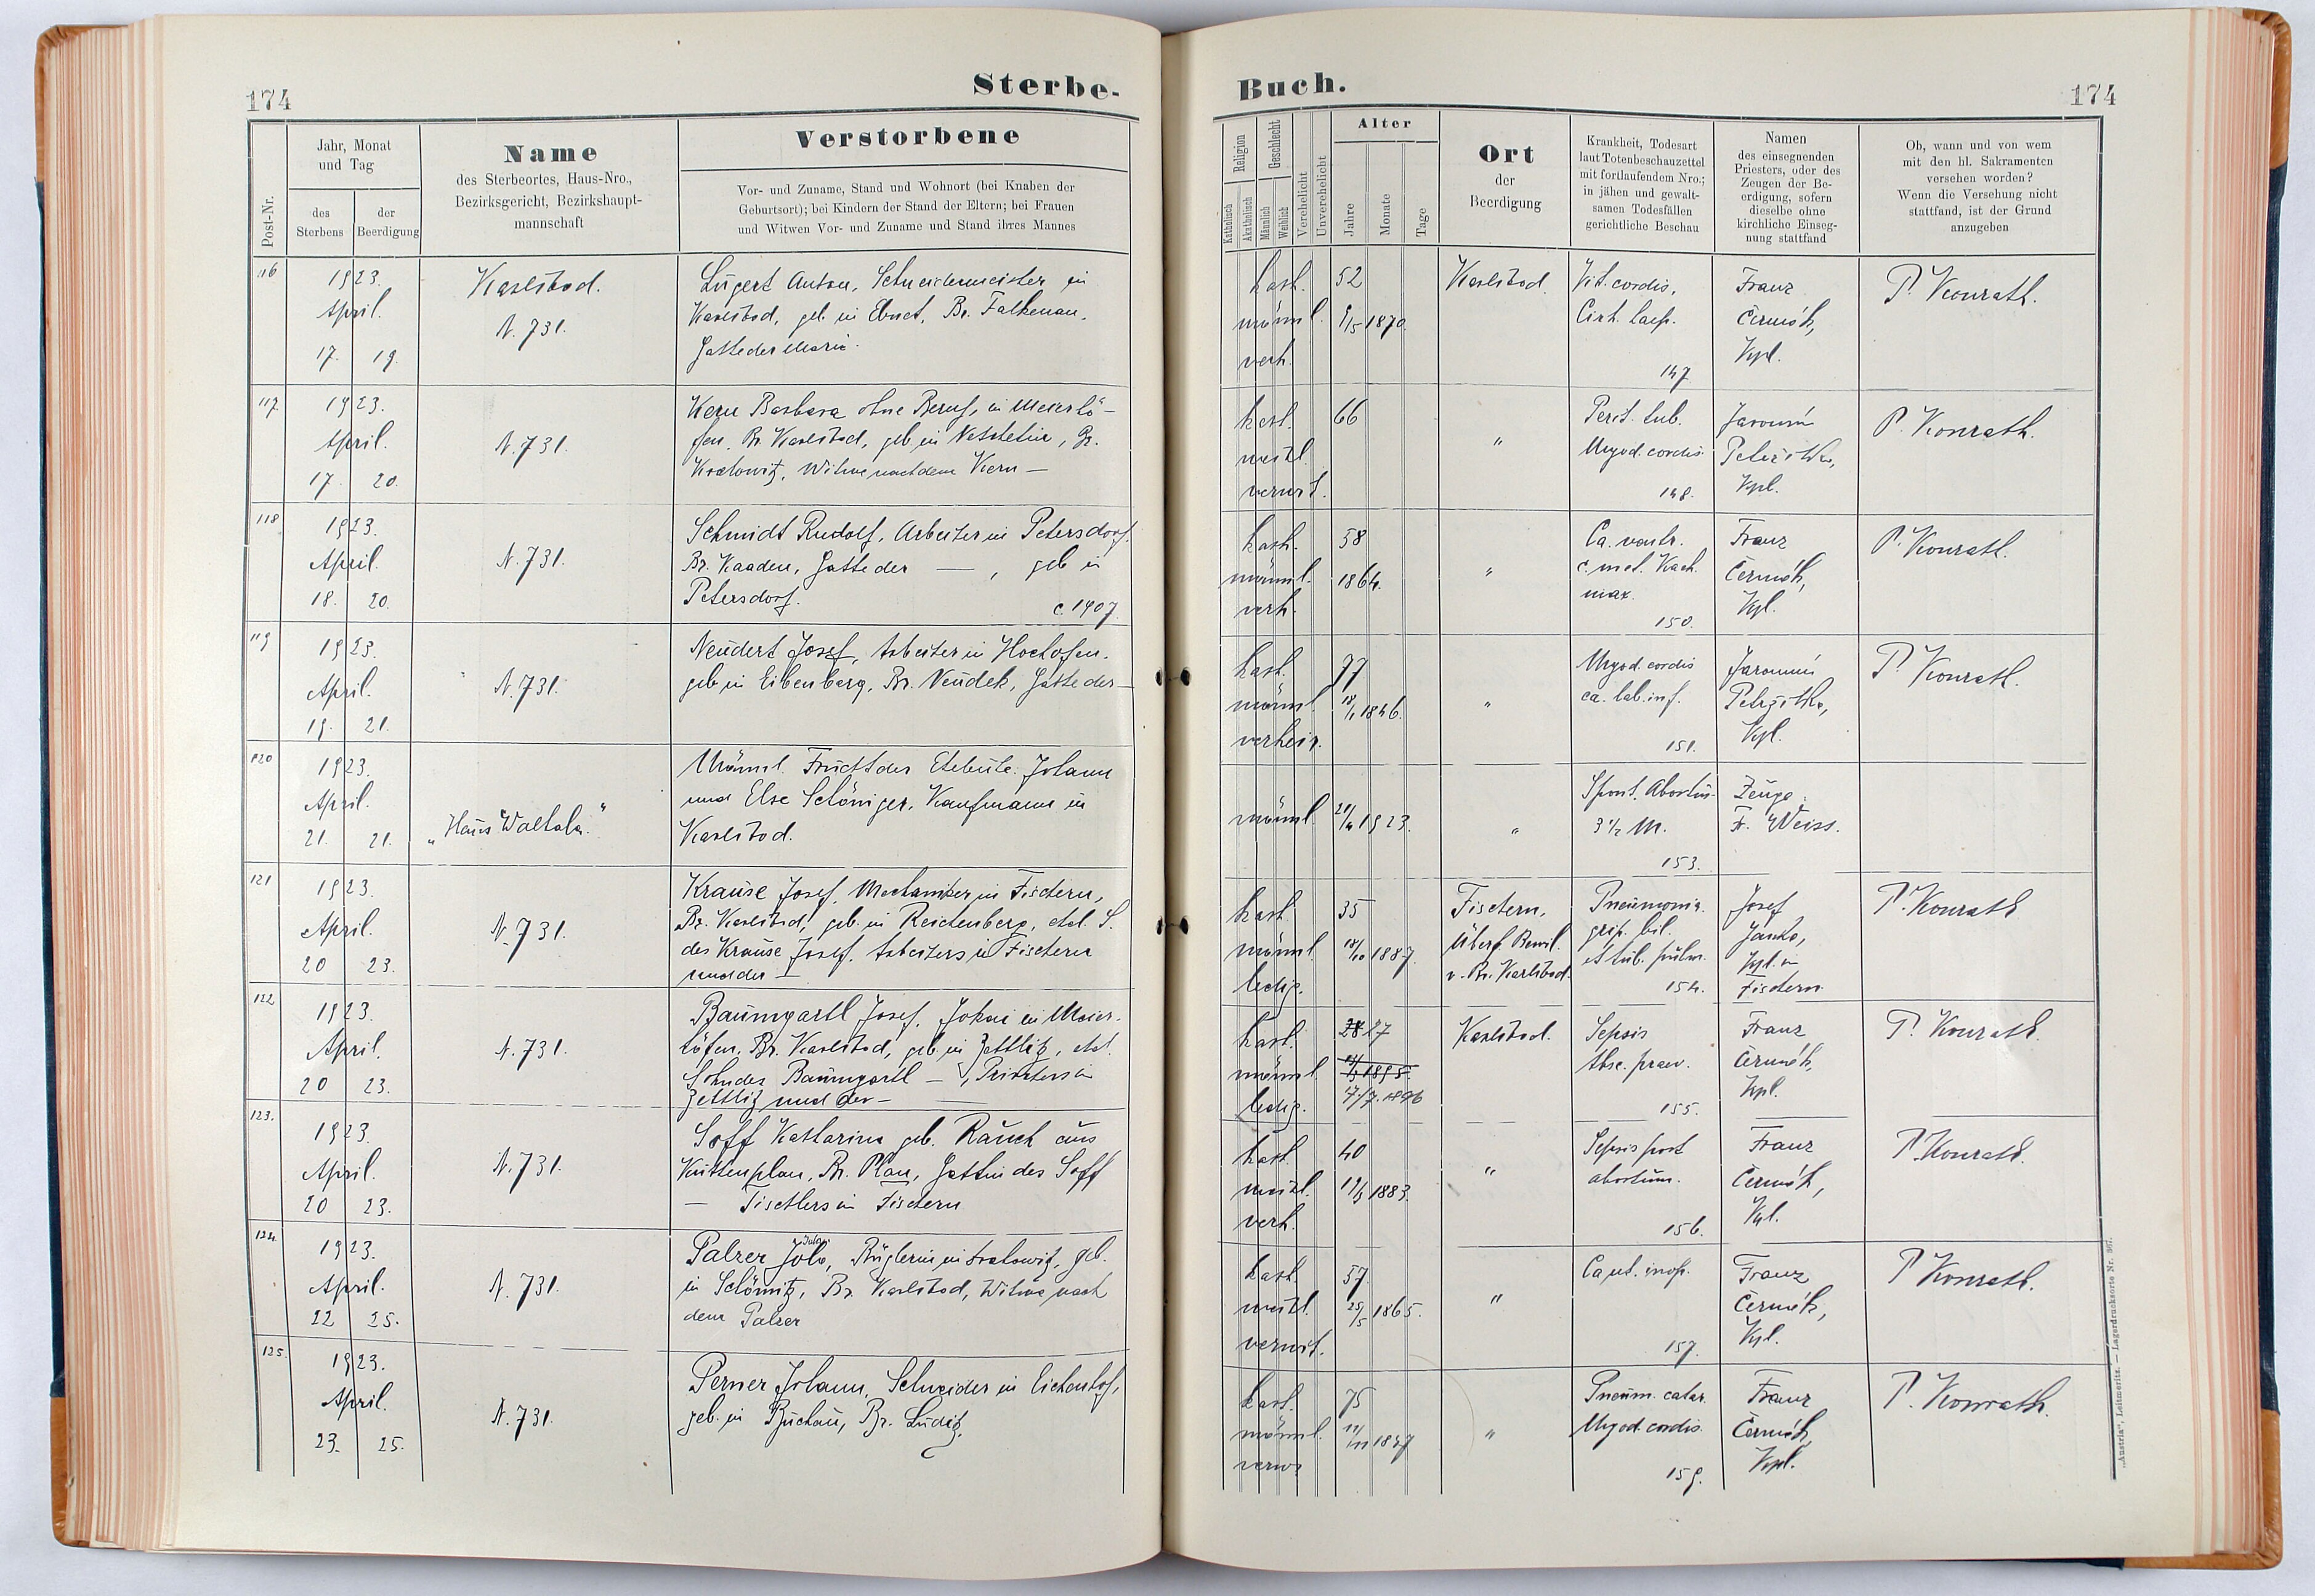 174
Sterbe-
Post-Nr.
Jahr, Monat
und Tag
des
Sterbens
der
Beerdigung
Name
des Sterbeortes, Haus-Nro.,
Bezirksgericht, Bezirkshaupt-
mannschaft
Verstorbene
Vor- und Zuname, Stand und Wohnort (bei Knaben der
Geburtsort); bei Kindern der Stand der Eltern; bei Frauen
und Witwen Vor- und Zuname und Stand ihres Mannes
116
1923.
April.
17. 19.
Karlsbad.
N. 731.
Lugert Anton, Schneidermeister in
Karlsbad, geb. in Ebnet, Br. Falkenau,
Gatte der Marie.
117
1923.
April.
17. 20.
N. 731.
Kern Barbara ohne Beruf, in Meierhö-
fen, Br. Karlsbad, geb. in
Witwe nach dem Kern —
118
1923.
April.
18. 20.
N. 731.
Schmidt Rudolf, Arbeiter in Petersdorf,
Br. Kaaden, Gatte der —, geb in
Petersdorf.
c. 1907
119
1923.
April.
19. 21.
N. 731.
Neudert Josef, Arbeiter in Hochofen.
geb in Eibenberg, Br. Neudek, Gatte der —
120
1923.
April.
21. 21.
„Haus Walhala."
Männl. Frucht der Eheleute Johann
und Else Schöniger, Kaufmanns in
Karlsbad.
121
1923.
April.
20 23.
N. 731.
Krause Josef, Mechaniker in Fischern,
Br. Karlsbad, geb. in Reichenberg, ehel. S.
des Krause Josef, Arbeiters in Fischern
und der —
122
1923.
April.
20 23.
N. 731.
Baumgartl Josef, in Meier-
höfen, Br. Karlsbad, geb. in Zettlitz, ehel.
Sohn des Baumgartl —, in
Zettlitz und der —
123.
1923.
April.
20 23.
N. 731.
Soff Katharina geb. Rauch aus
Kuttenplan, Br. Plan, Gattin des Soff
— Tischlers in Fischern
124.
1923.
April.
22 25.
N. 731.
Palzer Büglerin in geb.
in Schömitz, Br. Karlsbad, Witwe nach
dem Palzer
125.
1923.
April.
23. 25.
N. 731.
Perner Johann, Schneider in Eichenhof,
geb. in Buchau, Br. Luditz.
Buch.
174
Religion
Katholisch
Akatholisch
Geschlecht
Männlich
Weiblich
Verehelicht
Unverehelicht
Alter
Jahre
Monate
Tage
Ort
der
Beerdigung
Krankheit, Todesart
laut Totenbeschauzettel
mit fortlaufendem Nro.;
in jähen und gewalt-
samen Todesfällen
gerichtliche Beschau
Namen
des einsegnenden
Priesters, oder des
Zeugen der Be-
erdigung, sofern
dieselbe ohne
kirchliche Einseg-
nung stattfand
Ob, wann und von wem
mit den hl. Sakramenten
versehen worden?
Wenn die Versehung nicht
stattfand, ist der Grund
anzugeben
kath.
männl.
verh.
52
1870.
Karlsbad.
Vit. cordis,
Cirh. haep.
147
Franz
Čermák,
Kpl.
P. Konrath.
kath.
weibl.
verwit.
66
"
Perit. tub.
Myod. cordis.
148.
Jaromír
Petržilka,
Kpl.
P. Konrath.
kath.
männl.
verh.
58
1864.
"
Ca. ventr.
c. met. Kach.
max.
150.
Franz
Čermák,
Kpl.
P. Konrath.
kath.
männl.
verheir.
77
18/1 1846.
"
Myod. cordis
ca. lab. inf.
151.
Jaromír
Petržilka,
Kpl.
P. Konrath.
männl.
21/4 1923.
"
Spont. Abortus
3 1/2 M.
153.
Zeuge
Fr. Weiss.
kath.
männl.
ledig.
35
18/10 1887.
Fischern,
Überf. Bewil.
v. Br. Karlsbad.
Pneumonia
grip. bil.
et tub. pulm.
154.
Josef
Janko,
Kpl. in
Fischern
P. Konrath
kath.
männl.
ledig.
28 27
1895.
17./7. 1896
Karlsbad.
Sepsis
Absc. praev.
155.
Franz
Čermák,
Kpl.
P. Konrath.
kath.
weibl.
verh.
40
1883.
"
Sepsis post
abortum.
156.
Franz
Čermák,
Kpl.
P. Konrath.
kath.
weibl.
verwit.
57
25/5 1865.
"
Ca ut. inop.
157.
Franz
Čermák,
Kpl.
P. Konrath.
kath.
männl.
verw.
75
11/11 1847
"
Pneum. catar.
Myod. cordis.
159.
Franz
Čermák,
Kpl.
P. Konrath.
„Austria“, Leitmeritz. — Lagerdrucksorte Nr. 367.